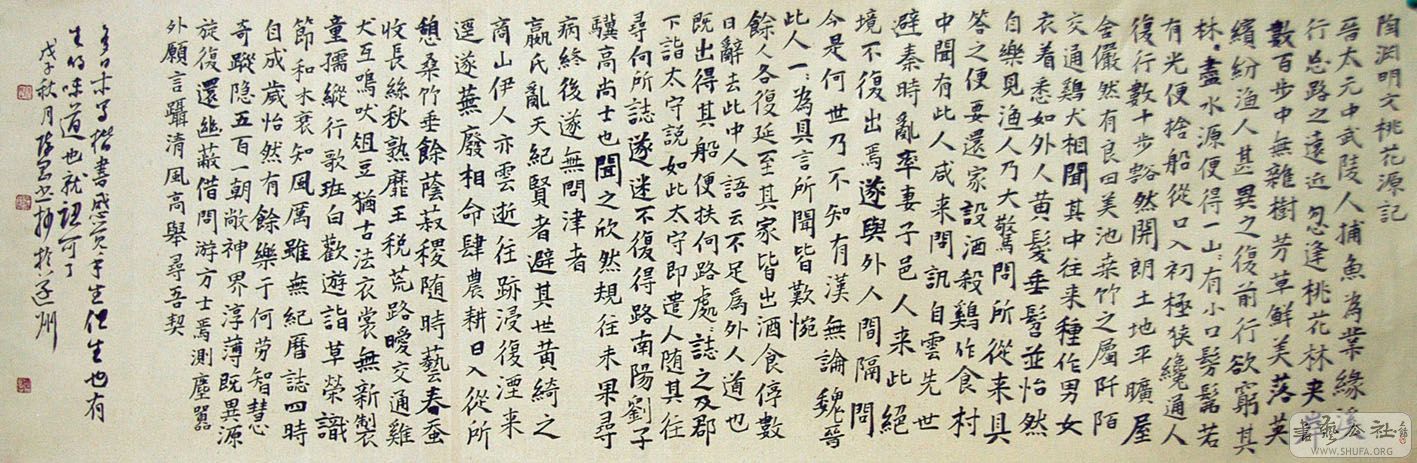 陶渊明文桃花源記
晉太元中武陵人捕魚為業緣溪
行忘路之遠近忽逢桃花林夹岸
數百步中無雜樹芳草鮮美落英
繽紛渔人甚異之復前行欲窮其
林〻盡水源便得一山〻有小口髣髴若
有光便捨船從口入初極狭纔通人
復行數十步豁然開朗土地平曠屋
舍儼然有良田美池桑竹之屬阡陌
交通鷄犬相聞其中往来種作男女
衣着悉如外人黄髮垂髫並怡然
自樂見渔人乃大驚問所從来具
答之便要還家設酒殺鷄作食村
中聞有此人咸来問訊自雲先世
避秦時亂率妻子邑人来此絕
境不復出焉遂與外人間隔問
今是何世乃不知有漢無論魏晉
此人一〻為具言所聞皆歎惋
餘人各復延至其家皆出酒食停數
日辭去此中人語云不足為外人道也
既出得其船便扶向路處〻誌之及郡
下詣太守説如此太守即遣人随其往
尋向所誌遂迷不復得路南陽劉子
驥高尚士也聞之欣然規往未果尋
病終後遂無問津者
嬴氏亂天紀賢者避其世黄綺之
商山伊人亦雲逝往跡浸復湮来
逕遂蕪廢相命肆農耕日入從所
憩桑竹垂餘蔭菽稷随時藝春蚕
收長絲秋熟靡王税荒路曖交通雞
犬互鳴吠俎豆猶古法衣裳無新製
童孺縱行歌班白歡遊詣草榮識
節和木衰知風厲雖無紀曆誌四時
自成歲怡然有餘樂于何劳智慧
奇蹤隐五百一朝敞神界淳薄既異源
旋復還幽蔽借問游方士焉測塵囂
外願言躡清風高舉尋吾契
多日未写楷書感覚手生但生也有
生的味道也就認可了
戊子秋月於逐州
書藝公社
WWW.SHUFA.ORG